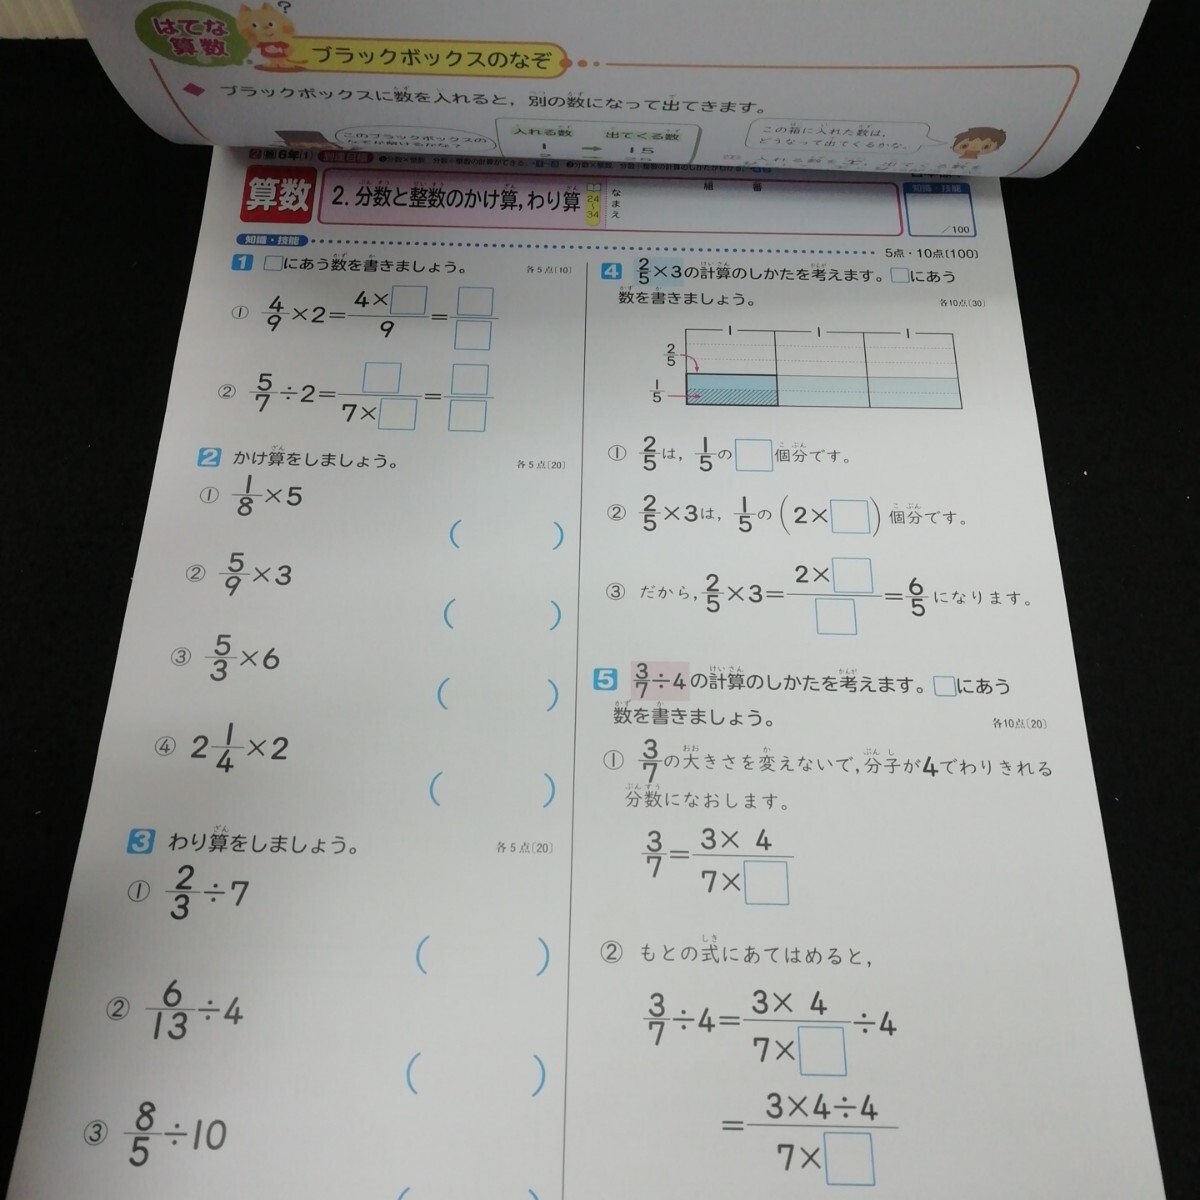 はてな
算数
?
ブラックボックスのなぞ
◆ ブラックボックスに数を入れると，別の数になって出てきます。
このブラックボックスの
なぞが解けるかな？
入れる数 出てくる数
1 → 15
この箱に入れた数は，
どうなって出てくるかな。
6年(1)
算数
2. 分数と整数のかけ算，わり算
24〜34
なまえ
組 番
知識・技能
/100
知識・技能
5点・10点(100)
1 □にあう数を書きましょう。 各5点(10)
① 4/9×2=4×□/9=□/□
② 5/7÷2=□/7×□=□/□
2 かけ算をしましょう。 各5点(20)
① 1/8×5
( )
② 5/9×3
( )
③ 5/3×6
( )
④ 2 1/4×2
( )
3 わり算をしましょう。 各5点(20)
① 2/3÷7
( )
② 6/13÷4
( )
③ 8/5÷10
4 2/5×3の計算のしかたを考えます。□にあう
数を書きましょう。 各10点(30)
1 1 1
2/5
1/5
① 2/5は，1/5の□個分です。
② 2/5×3は，1/5の(2×□)個分です。
③ だから，2/5×3=2×□/□=6/5になります。
5 3/7÷4の計算のしかたを考えます。□にあう
数を書きましょう。 各10点(20)
① 3/7の大きさを変えないで，分子が4でわりきれる
分数になおします。
3/7=3×4/7×□
② もとの式にあてはめると，
3/7÷4=3×4/7×□÷4
=3×4÷4/7×□